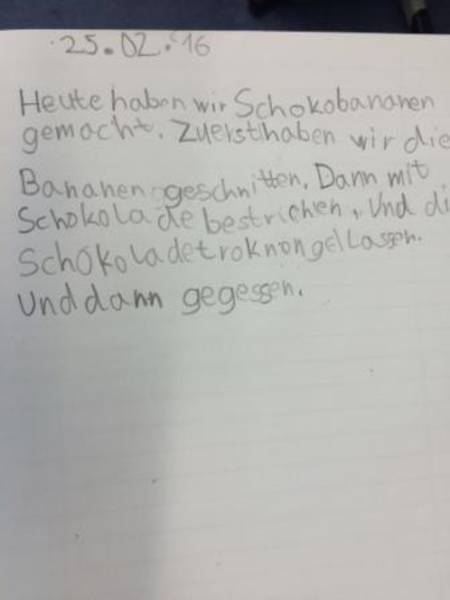 25.02.16
Heute haben wir Schokobananen
gemacht. Zuerst haben wir die
Bananen geschnitten. Dann mit
Schokolade bestrichen. Und di
Schokolade troknon gellassen.
Und dann gegessen.